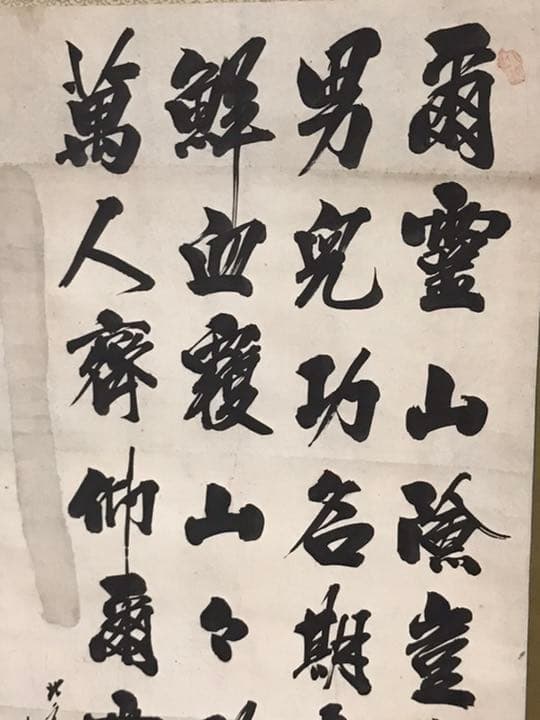 爾靈山險豈
男兒功名期
鮮血覆山々
萬人齊仰爾